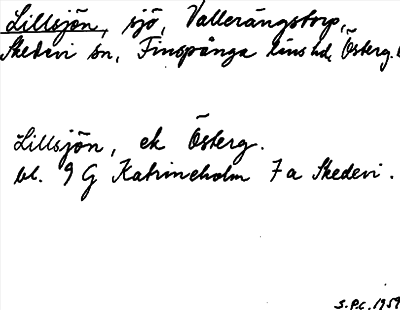 Lillsjön, sjö, Vallerängstorp,
Skedevi sn, Finspånga läns hd, Österg.
Lillsjön, ek Österg.
bl. 9 G Katrineholm 7 a Skedevi.
S.P.C. 1959